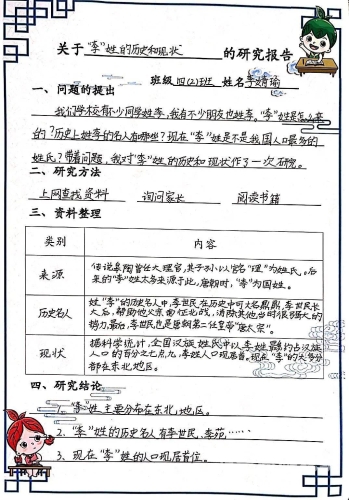 关于"李"姓的历史和现状的研究报告
班级 四(2)班 姓名 李婧瑜
一、问题的提出
我们学校有不少同学姓李,我有不少朋友也姓李,"李"姓是怎么来
的?历史上姓李的名人有哪些?现在"李"姓是不是我国人口最多的
姓氏?带着问题,我对"李"姓的历史和现状作了一次研究。
二、研究方法
上网查找资料 询问家长 阅读书籍
三、资料整理
类别 内容
来源
传说皋陶曾任大理官,其子孙以官名"理"为姓氏。后
来的"李"姓大多来源于此,唐朝时,"李"为国姓。
历史名人
姓"李"的历史名人中,李世民在历史中可大名鼎鼎,李世民长
大后,帮助他父亲南征北战,消除其他当时很强大的
势力,最后,李世民也是唐朝第二任皇帝"唐太宗"。
现状
据科学统计,全国汉族姓氏中以李姓最多约占汉族
人口的百分之七点九,李姓人口现居首。现在"李"的大部分
都在东北地区。
四、研究结论
1、"李"姓主要分布在东北地区。
2、"李"姓的历史名人有李世民、李苑……
3、现在"李"姓的人口现居首位。